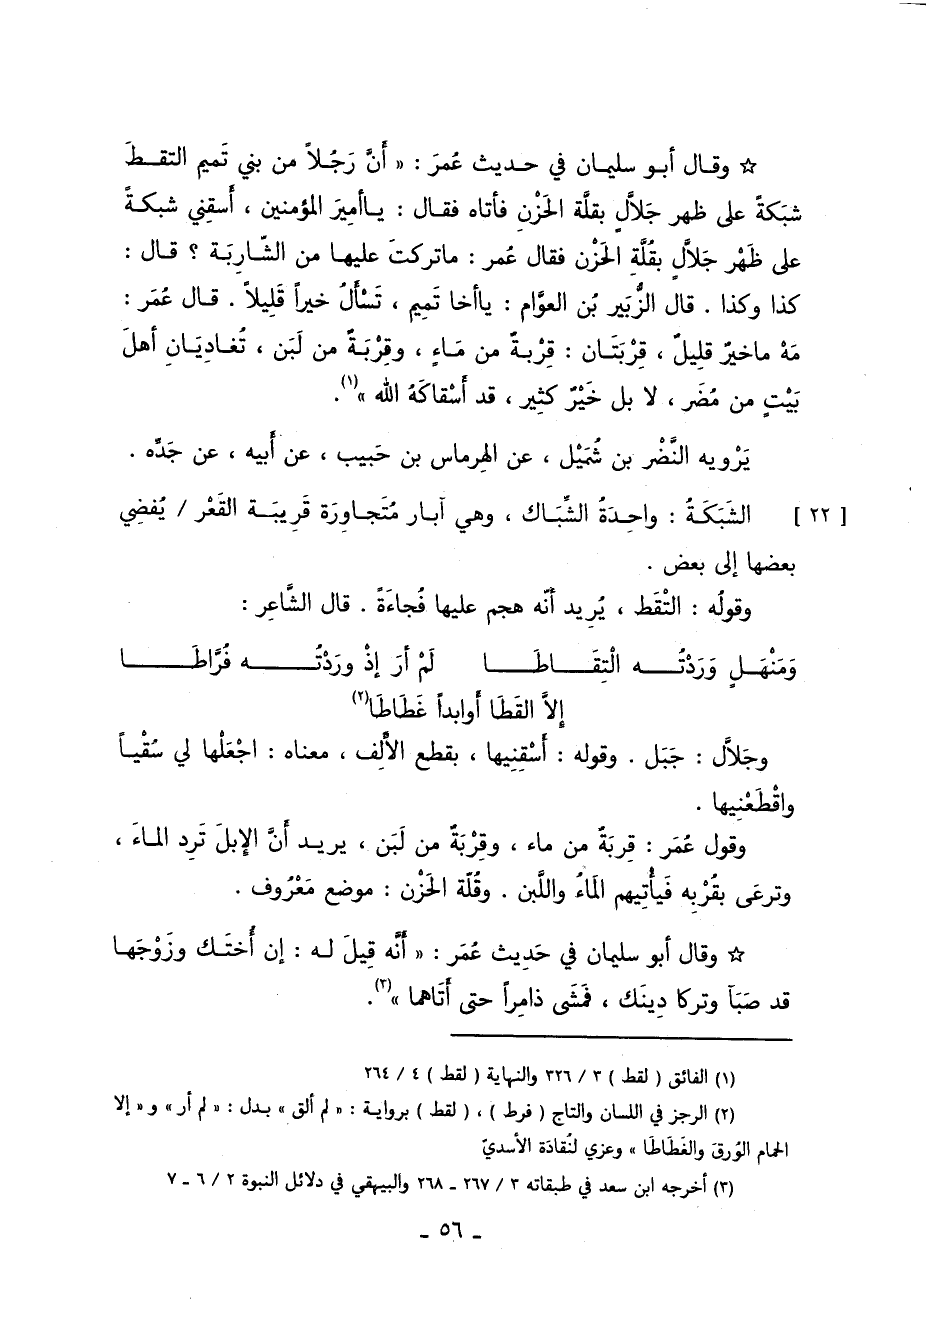 ☆ وقال أبو سليمان في حديث عُمَرَ : « أَنَّ رَجُلاً من بني تَميم التقطَ
شبَكةً على ظهر جَلاَّلٍ بقلَّة الحَزْنِ فأتاه فقال : ياأميرَ المؤمنين ، أَسقِني شبكةً
على ظَهْر جلاَّلٍ بقُلَّةِ الحَزْن فقال عُمر : ماتركتَ عليها من الشّاربَة ؟ قال :
كذا وكذا . قال الزُّبَير بُن العوَّام : ياأخا تَميمٍ ، تَسْأَلُ خيراً قَليلاً . قال عُمَر :
مَهْ ماخيرٌ قليلٌ ، قِرْبَتَان : قِرْبةٌ من مَاءٍ ، وقِرْبَةٌ من لَبَن ، تُغاديَانِ أهلَ
بَيْتٍ من مُضَر ، لا بل خَيْرٌ كثِير ، قد أَسْقاكَهُ الله »(١).
يَرْويه النَّضْر بن شُمَيْل ، عن الهِرماس بن حَبيب ، عن أَبيه ، عن جَدِّه .
[ ٢٢ ] الشَبَكَةُ : واحِدةُ الشِّبَاك ، وهي آبار مُتَجاورَة قَرِيبَة القَعْر / يُفضِي
بعضها إلى بعض .
وقولُه : التْقَط ، يُرِيد أنّه هجم عليها فُجاءَةً . قال الشَّاعِر :
وَمَنْهَلٍ وَرَدْتُه الْتِقَاطَا لَمْ أرَ إذْ وردْتُه فُرَّاطَا
إلاَّ القَطَا أَوابداً غَطَاطَا(٢)
وجَلاَّل : جَبَل . وقوله : أَسْقِنِيها ، بقطع الأَلِف ، معناه : اجْعَلْها لي سُقْياً
واقْطَعْنِيها .
وقول عُمَر : قِربَةٌ من ماء ، وقِرْبَةٌ من لَبَن ، يريد أَنَّ الإبلَ تَرِد الماءَ ،
وترعَى بقُرْبِه فَيأْتِيهم المَاءُ واللَّبن . وقُلّة الحَزْن : موضع مَعْرُوف .
☆ وقال أبو سليمان في حَدِيث عُمَر : « أَنَّه قِيلَ له : إن أُختَك وزَوْجَها
قد صَبَآ وتركا دِينَك ، فَمَشَى ذامِراً حتى أَتَاهما »(٣).
(١) الفائق ( لقط ) ٣ / ٣٢٦ والنهاية ( لقط ) ٤ / ٢٦٤
(٢) الرجز في اللسان والتاج ( فرط ) ، ( لقط ) برواية : « لم ألق » بدل : « لم أر » و « إلا
الحمام الوُرقَ والغَطَاطَا » وعزي لنُقادَة الأسديّ
(٣) أخرجه ابن سعد في طبقاته ٣ / ٢٦٧ ـ ٢٦٨ والبيهقي في دلائل النبوة ٢ / ٦ ـ ٧
ـ ٥٦ ـ